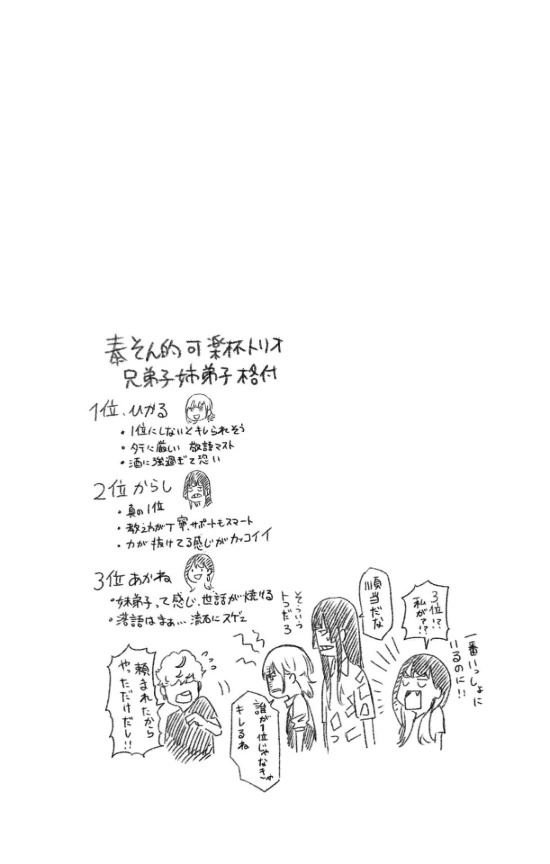 泰そん的可楽杯トリオ
兄弟子姉弟子格付
1位、ひかる
・1位にしないとキレられそう
・タテに厳しい 敬語マスト
・酒に強過ぎて恐い
2位 からし
・真の1位
・教え方が丁寧、サポートもスマート
・力が抜けてる感じがカッコイイ
3位 あかね
・姉弟子って感じ、世話が焼ける
・落語はまぁ…流石にスゲェ
3位!?
私が!?
一番いっしょに
いるのに!!
順当だな
そういう
トコだろ
誰が1位じゃなきゃ
キレるね
頼まれたから
やっただけだし!!